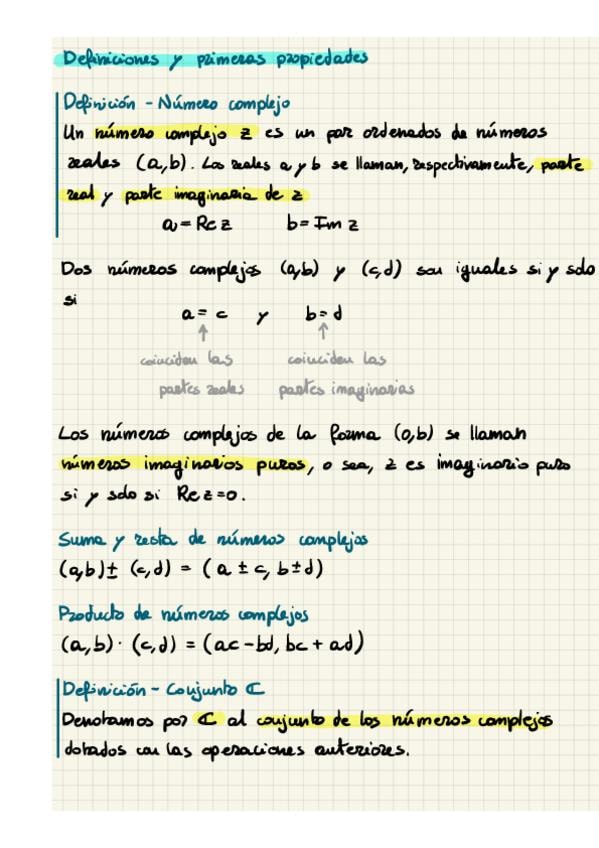 Definiciones y primeras propiedades
Definición - Número complejo
Un número complejo z es un par ordenados de números
reales (a,b). Los reales a y b se llaman, respectivamente, parte
real y parte imaginaria de z
a = Re z b = Im z
Dos números complejos (a,b) y (c,d) son iguales si y solo
si
a = c y b = d
↑ ↑
coinciden las coinciden las
partes reales partes imaginarias
Los números complejos de la forma (0,b) se llaman
números imaginarios puros, o sea, z es imaginario puro
si y solo si Re z = 0.
Suma y resta de números complejos
(a,b) ± (c,d) = (a ± c, b ± d)
Producto de números complejos
(a,b) · (c,d) = (ac - bd, bc + ad)
Definición - Conjunto ℂ
Denotamos por ℂ al conjunto de los números complejos
dotados con las operaciones anteriores.